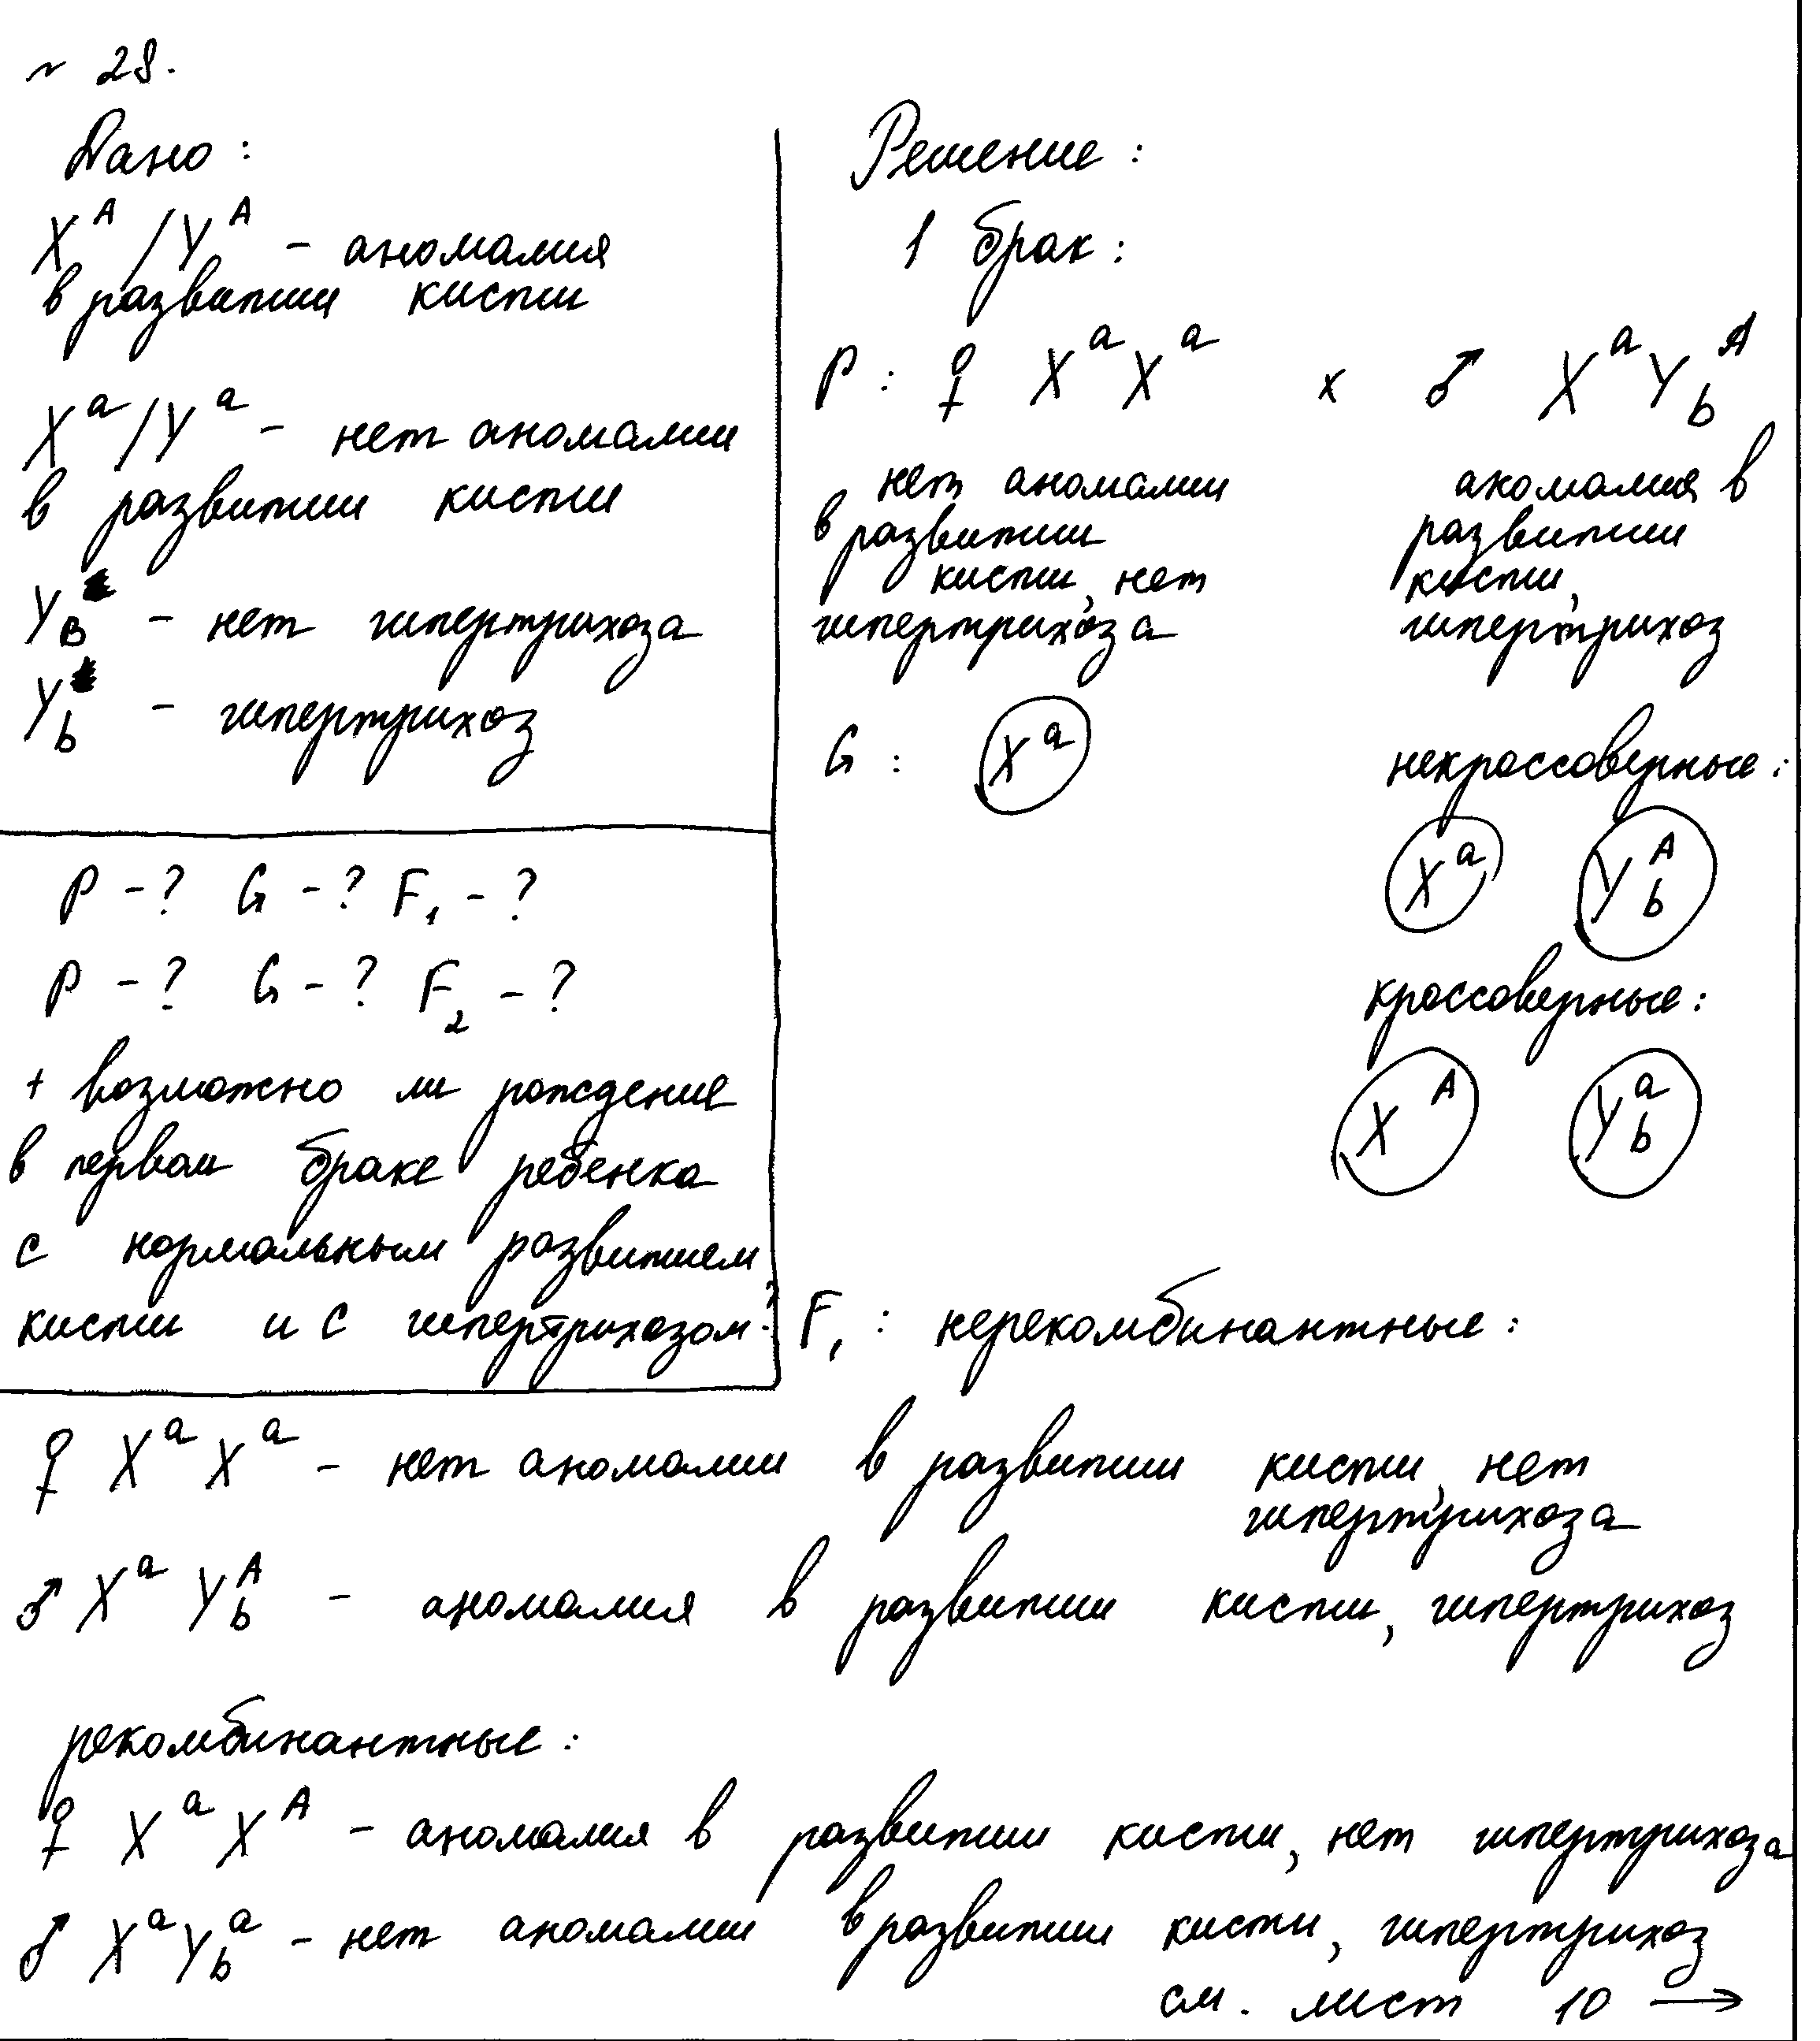 ~ 28.
Дано:
X^A / Y^A - аномалия
в развитии кисти
X^a / Y^a - нет аномалии
в развитии кисти
Y_B - нет гипертрихоза
Y_b - гипертрихоз
P - ? G - ? F_1 - ?
P - ? G - ? F_2 - ?
+ возможно ли рождение
в первом браке ребенка
с нормальным развитием
кисти и с гипертрихозом?
Решение:
1 брак:
P: ♀ X^a X^a x ♂ X^a Y_b^A
нет аномалии
в развитии
кисти, нет
гипертрихоза
аномалия в
развитии
кисти,
гипертрихоз
G: X^a
некроссоверные:
X^a Y_b^A
кроссоверные:
X^A Y_b^a
F_1: нерекомбинантные:
♀ X^a X^a - нет аномалии в развитии кисти, нет
гипертрихоза
♂ X^a Y_b^A - аномалия в развитии кисти, гипертрихоз
рекомбинантные:
♀ X^a X^A - аномалия в развитии кисти, нет гипертрихоза
♂ X^a Y_b^a - нет аномалии в развитии кисти, гипертрихоз
см. лист 10 →